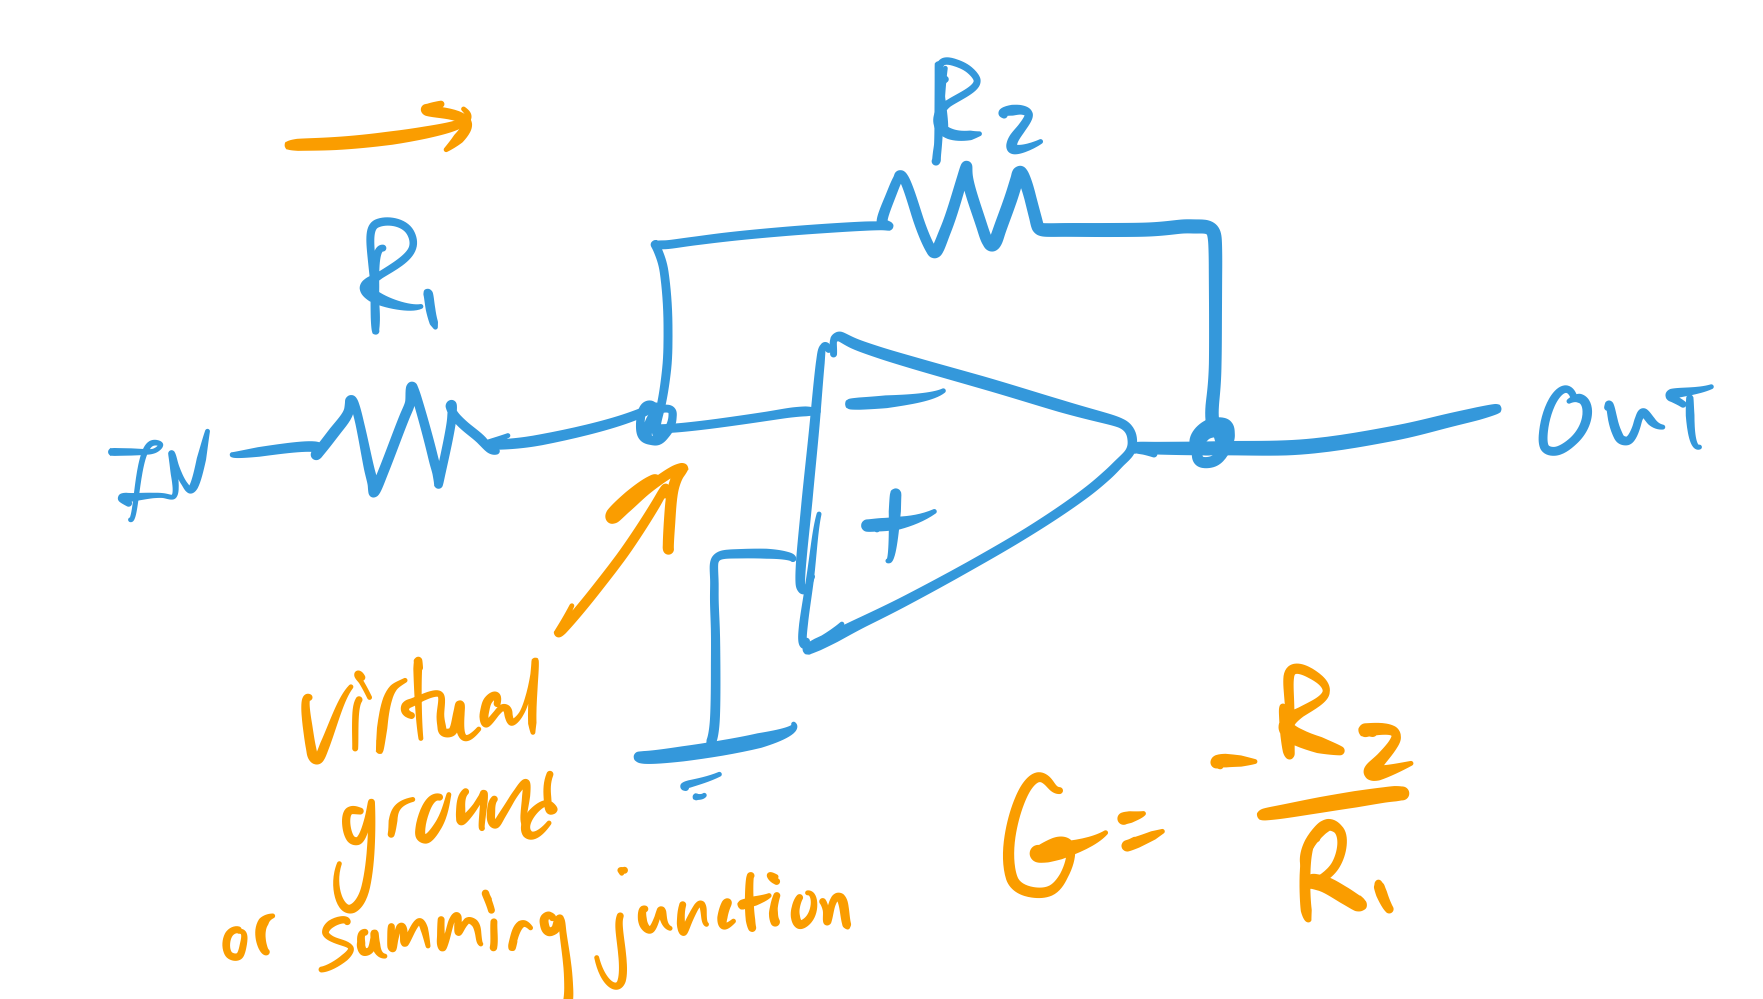 R2
R1
IN
OUT
−
+
virtual
ground
or summing junction
G = -R2/R1